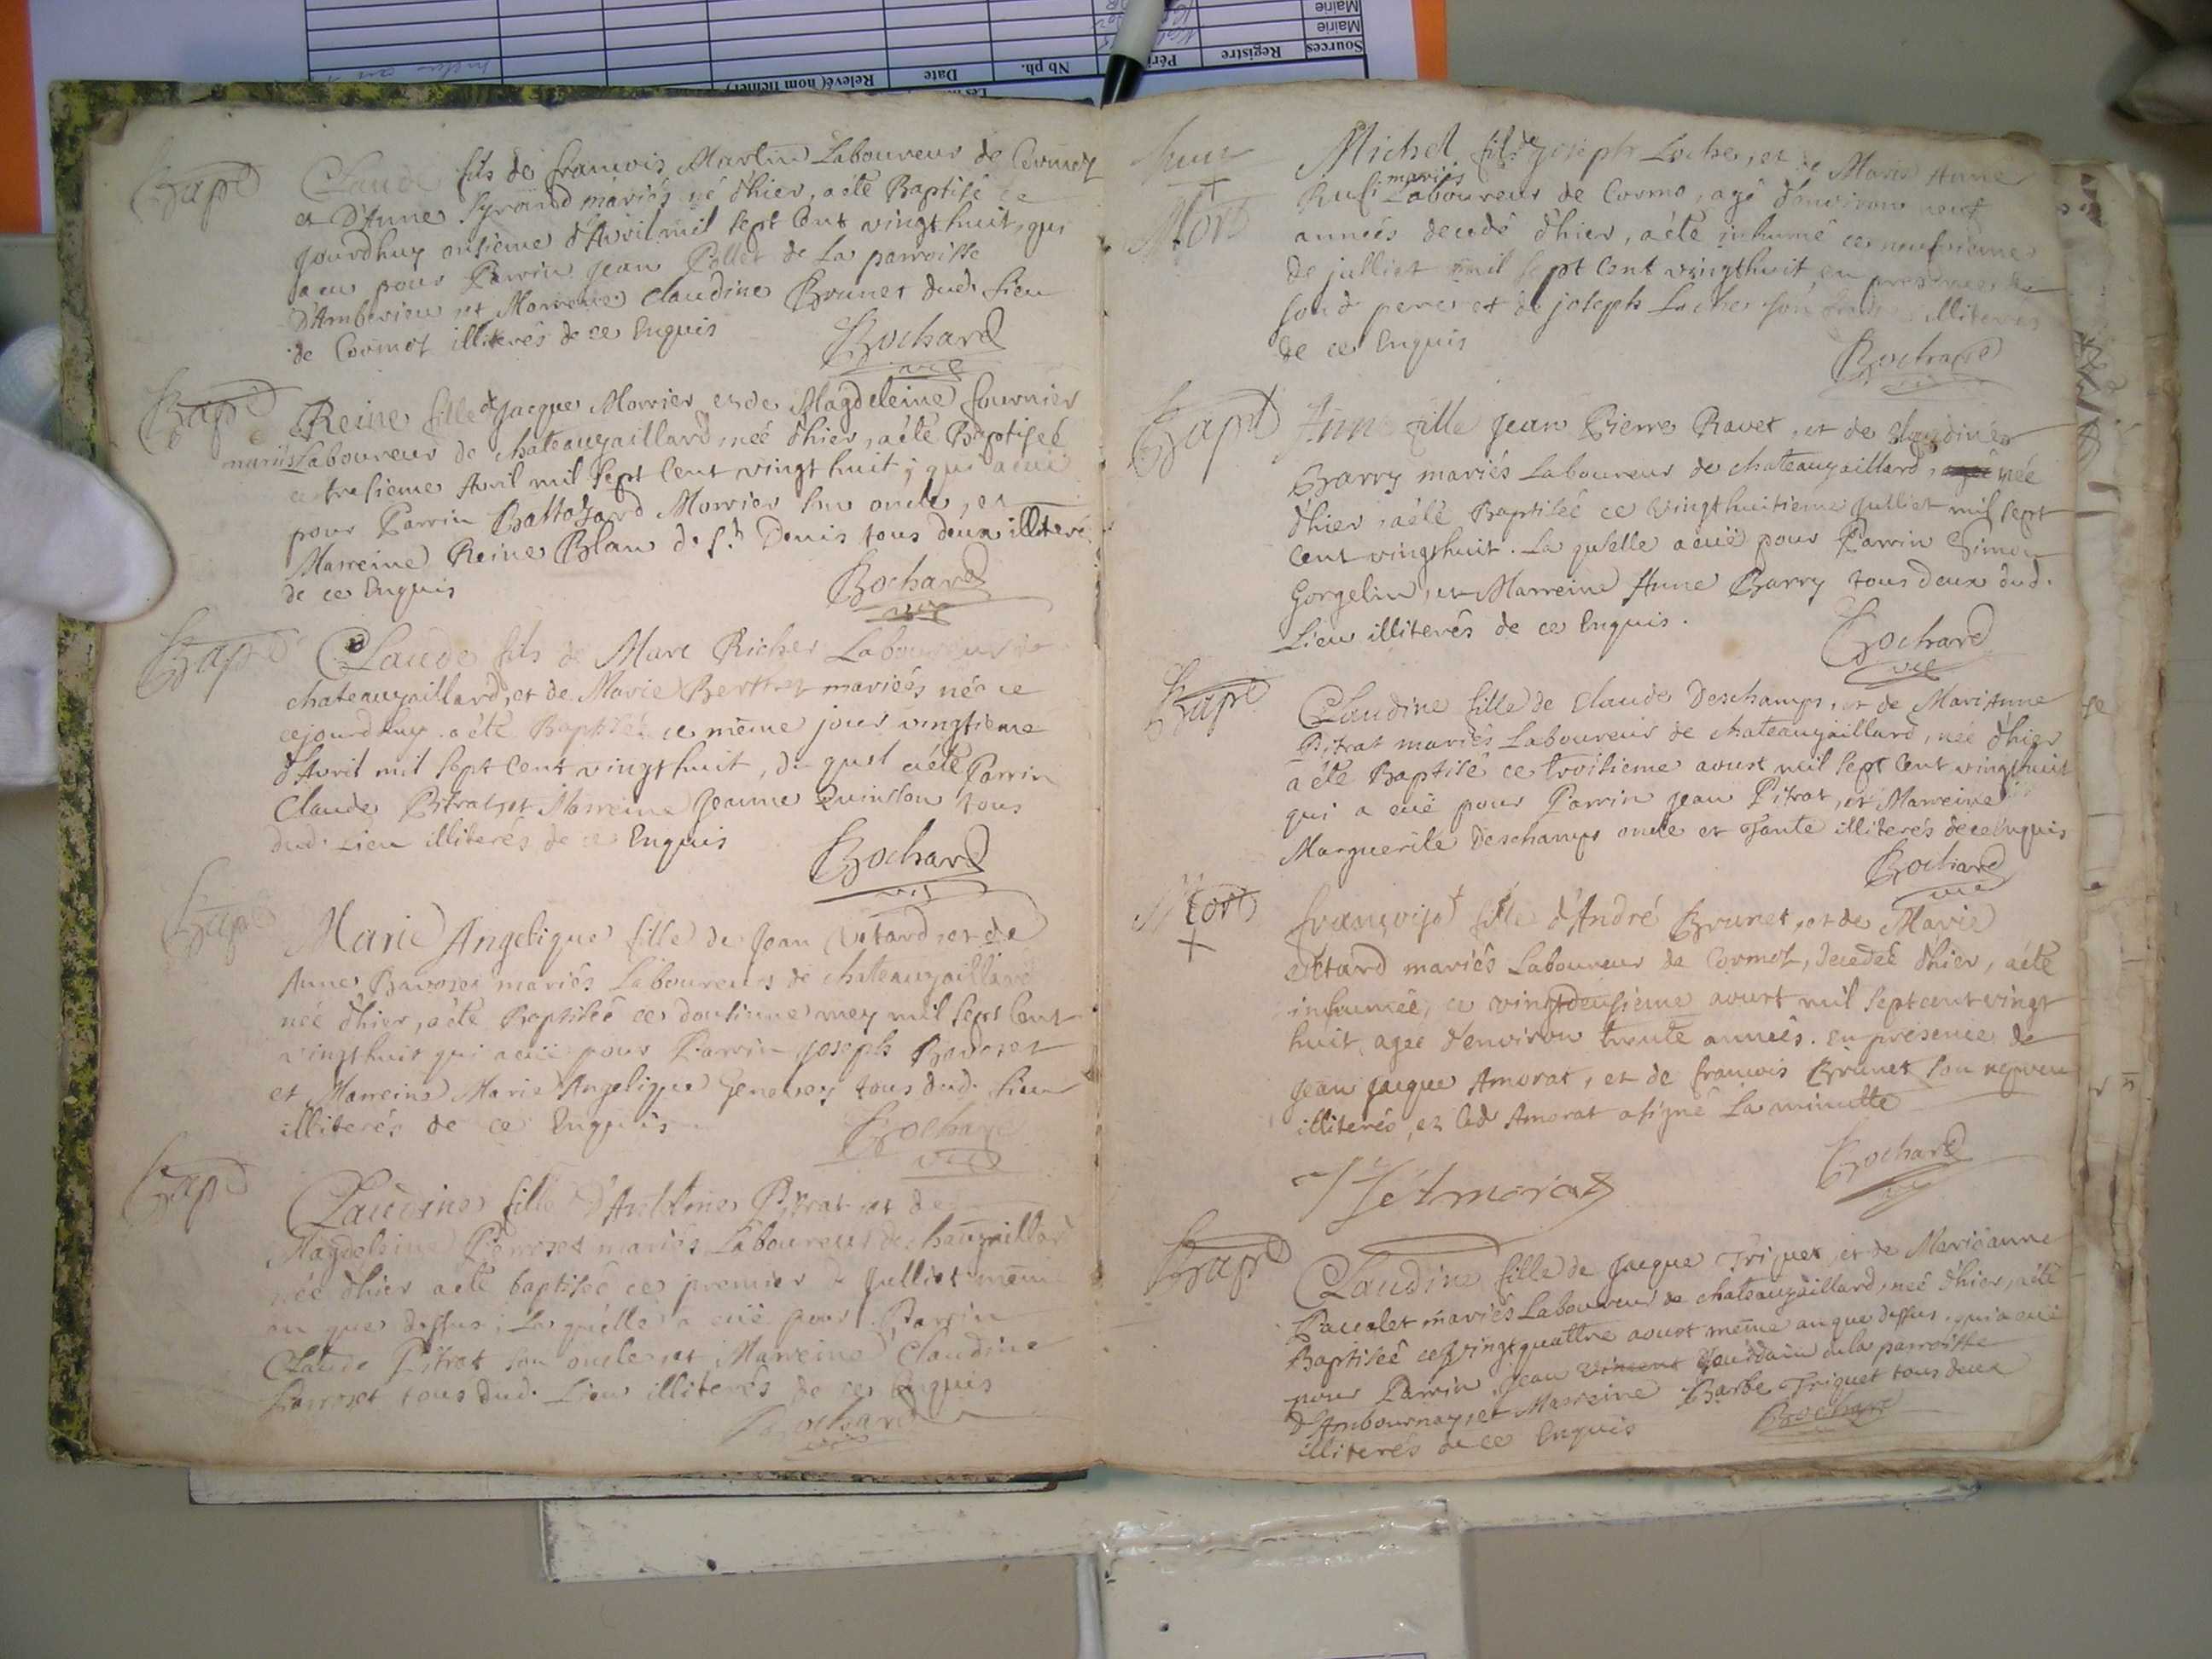 Sources
Registre
Nb ph.
Date
Mairie
Mairie
Bapt
Claude fils de francois Martin Laboureur de Cormoz
et D'Anne mariés né d'hier, a été Baptisé ce
jourdhuy onsieme d'Avril mil sept Cent vingt huit, qui
a eu pour Parrin Jean Pollet de La parroisse
d'Amberieu et Marreine Claudine Brunet dud. Lieu
de Cormot illiterés de ce Enquis
Bochard
vic
Bapt
Reine fille de Jacque Morrier et de Magdeleine fournier
mariés Laboureur de chateaugaillard, neé d'hier, a été Baptiseé
ce tresieme Avril mil sept Cent vingt huit; qui a eüe
pour Parrin Baltazard Morrier son oncle, et
Marreine Reine Blanc de St Denis tous deux illiteré
de ce Enquis
Bochard
vic
Bapt
Claude fils de Marc Richer Laboureur de
chateaugaillard, et de Marie Berthet marieés né ce
cejourdhuy a été Baptisé ce meme jour vingtieme
d'Avril mil sept Cent vingt huit, du quel a été Parrin
Claude Pitrat, et Marreine Jeanne Quinson tous
dud. Lieu illiterés de ce Enquis
Bochard
vic
Bapt
Marie Angelique fille de Jean et de
Anne Bavoset mariés Laboureurs de chateaugaillard
neé d'hier, a été Baptiseé ce dousieme mey mil sept Cent
vingt huit qui a eüe pour Parrin Joseph Bavoset
et Marreine Marie Angelique tous dud. Lieu
illiterés de ce Enquis
Bochard
vic
Bapt
Claudine fille d'Antelme Pitrat et de
Magdeleine Perroset mariés Laboureur de
neé d'hier a été baptiseé ce premier de Julliet meme
an que dessus; La quelle a eüe pour Parrin
Claude Pitrat son oncle, et Marreine Claudine
Perroset tous dud. Lieu illiterés de ce Enquis
Bochard
Mort
Michel fils de Joseph Locher, et de Marie Anne
Rufi mariés Laboureur de Cormo, agé d'environ neuf
anneés decedé d'hier, a été inhumé ce neufvieme
de julliet mil sept Cent vingthuit en presence de
sond. pere et de joseph Locher son illiterés
de ce Enquis
Bochard
Bapt
Anne fille Jean Pierre Ravet, et de Claudine
Barry mariés Laboureur de chateaugaillard, neé
d'hier a été Baptiseé ce vingthuitieme Julliet mil sept
Cent vingthuit. La quelle a eüe pour Parrin Simon
Gorgelin, et Marreine Anne Barry tous deux dud.
Lieu illiterés de ce Enquis.
Bochard
vic
Bapt
Claudine fille de Claude Deschamps, et de Marianne
Pitrat mariés Laboureur de chateaugaillard, neé d'hier
a été Baptisé ce troisieme aoust mil sept Cent vingthuit
qui a eüe pour Parrin Jean Pitrat, et Marreine
Marguerite Deschamps oncle et Tante illiterés de ce Enquis
Bochard
vic
Mort
françoise fille d'André Brunet, et de Marie
mariés Laboureur de Cormot, decedeé d'hier, a été
inhumeé, ce vingtdeusieme aoust mil sept cent vingt
huit, ageé d'environ trente anneés. en presence de
Jean Jacque Amorat, et de francois Brunet son nepveu
illiterés, et led Amorat a signé La minutte
Bochard
JJ Amorat
Bapt
Claudine fille de Jacque Triquet, et de Marieanne
Pauvalet mariés Laboureur de chateaugaillard, neé d'hier, a été
Baptiseé ce vingtquattre aoust meme an que dessus, qui a eüe
pour Parrin Jean Vincent Jourdain de la parroisse
d'Ambournay, et Marreine Barbe Triquet tous deux
illiterés de ce Enquis
Bochard